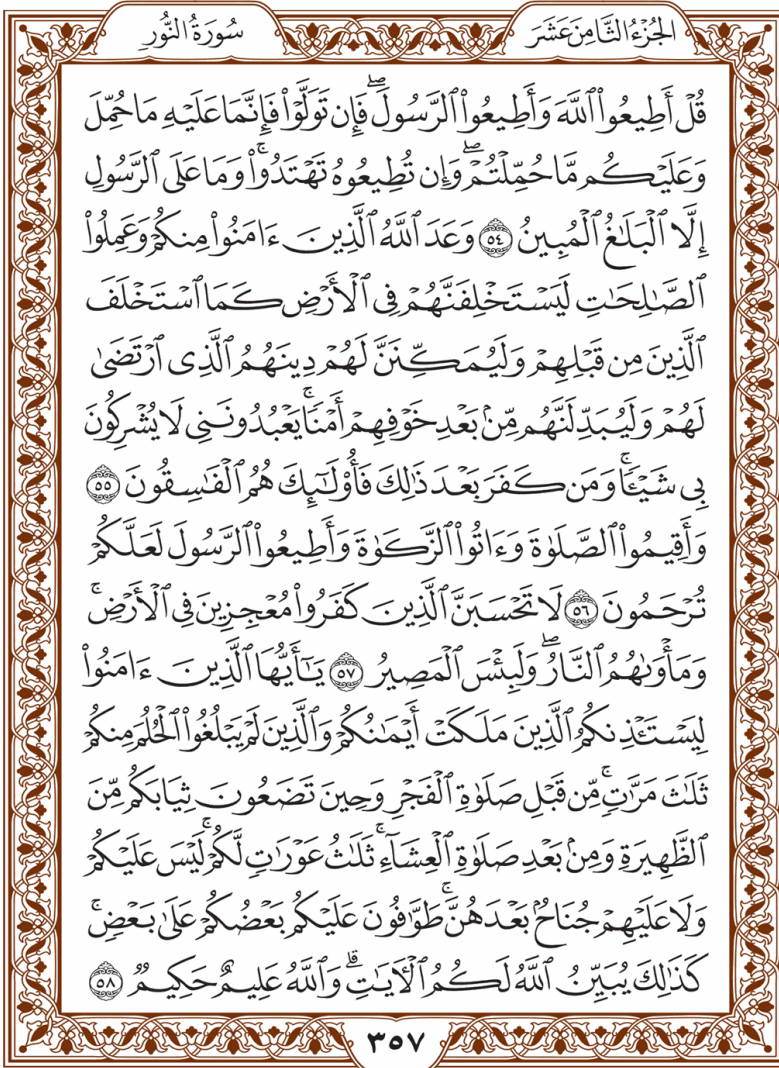 الجُزْءُ الثَّامِنَ عَشَرَ
سُورَةُ النُّورِ
قُلْ أَطِيعُوا۟ ٱللَّهَ وَأَطِيعُوا۟ ٱلرَّسُولَۖ فَإِن تَوَلَّوْا۟ فَإِنَّمَا عَلَيْهِ مَا حُمِّلَ
وَعَلَيْكُم مَّا حُمِّلْتُمْۖ وَإِن تُطِيعُوهُ تَهْتَدُوا۟ۚ وَمَا عَلَى ٱلرَّسُولِ
إِلَّا ٱلْبَلَٰغُ ٱلْمُبِينُ ٥٤ وَعَدَ ٱللَّهُ ٱلَّذِينَ ءَامَنُوا۟ مِنكُمْ وَعَمِلُوا۟
ٱلصَّٰلِحَٰتِ لَيَسْتَخْلِفَنَّهُمْ فِى ٱلْأَرْضِ كَمَا ٱسْتَخْلَفَ
ٱلَّذِينَ مِن قَبْلِهِمْ وَلَيُمَكِّنَنَّ لَهُمْ دِينَهُمُ ٱلَّذِى ٱرْتَضَىٰ
لَهُمْ وَلَيُبَدِّلَنَّهُم مِّنۢ بَعْدِ خَوْفِهِمْ أَمْنًاۚ يَعْبُدُونَنِى لَا يُشْرِكُونَ
بِى شَيْـًٔاۚ وَمَن كَفَرَ بَعْدَ ذَٰلِكَ فَأُو۟لَٰٓئِكَ هُمُ ٱلْفَٰسِقُونَ ٥٥
وَأَقِيمُوا۟ ٱلصَّلَوٰةَ وَءَاتُوا۟ ٱلزَّكَوٰةَ وَأَطِيعُوا۟ ٱلرَّسُولَ لَعَلَّكُمْ
تُرْحَمُونَ ٥٦ لَا تَحْسَبَنَّ ٱلَّذِينَ كَفَرُوا۟ مُعْجِزِينَ فِى ٱلْأَرْضِۚ
وَمَأْوَىٰهُمُ ٱلنَّارُۖ وَلَبِئْسَ ٱلْمَصِيرُ ٥٧ يَٰٓأَيُّهَا ٱلَّذِينَ ءَامَنُوا۟
لِيَسْتَـْٔذِنكُمُ ٱلَّذِينَ مَلَكَتْ أَيْمَٰنُكُمْ وَٱلَّذِينَ لَمْ يَبْلُغُوا۟ ٱلْحُلُمَ مِنكُمْ
ثَلَٰثَ مَرَّٰتٍۚ مِّن قَبْلِ صَلَوٰةِ ٱلْفَجْرِ وَحِينَ تَضَعُونَ ثِيَابَكُم مِّنَ
ٱلظَّهِيرَةِ وَمِنۢ بَعْدِ صَلَوٰةِ ٱلْعِشَآءِۚ ثَلَٰثُ عَوْرَٰتٍ لَّكُمْۚ لَيْسَ عَلَيْكُمْ
وَلَا عَلَيْهِمْ جُنَاحٌۢ بَعْدَهُنَّۚ طَوَّٰفُونَ عَلَيْكُم بَعْضُكُمْ عَلَىٰ بَعْضٍۚ
كَذَٰلِكَ يُبَيِّنُ ٱللَّهُ لَكُمُ ٱلْـَٔايَٰتِۗ وَٱللَّهُ عَلِيمٌ حَكِيمٌ ٥٨
٣٥٧